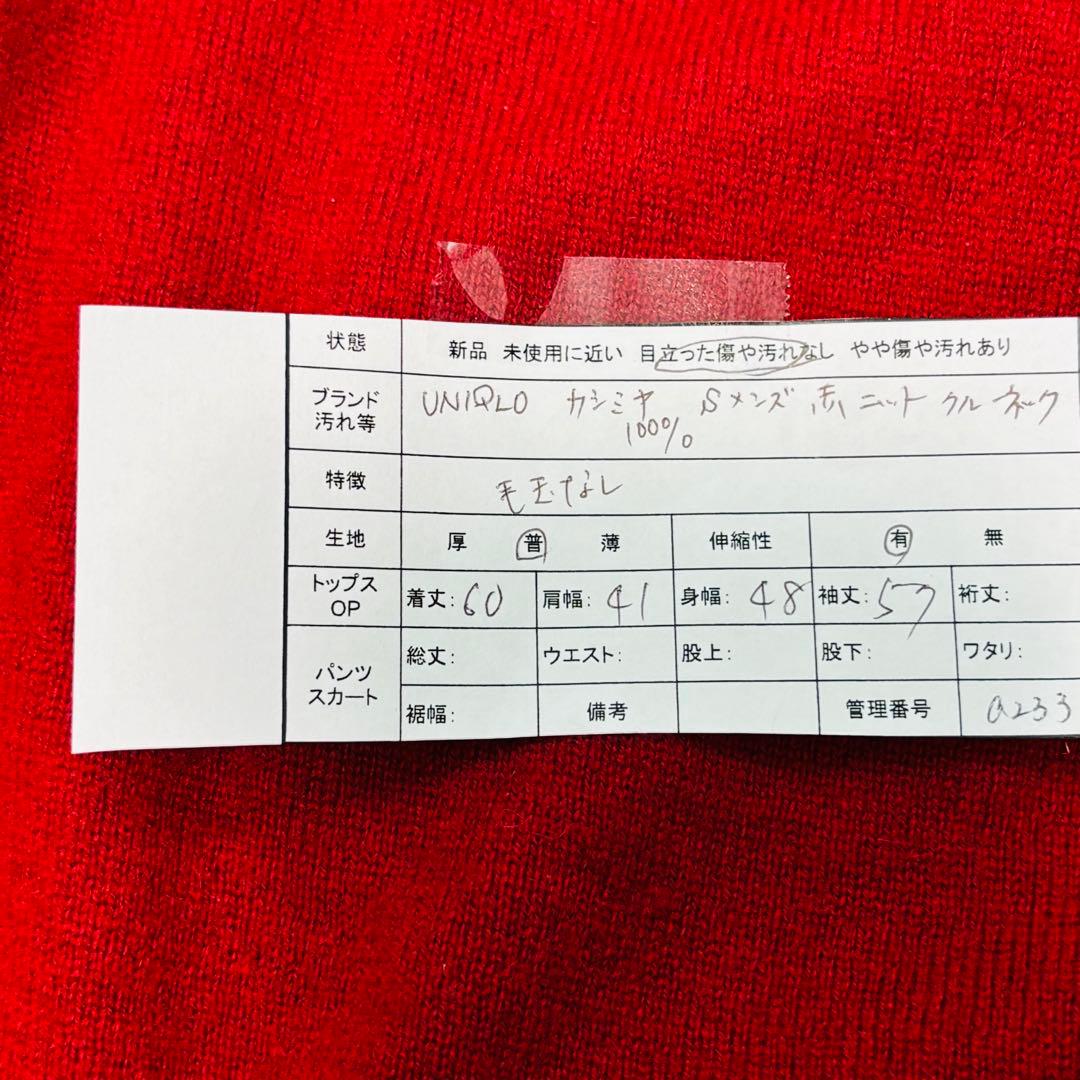 状態 新品 未使用に近い 目立った傷や汚れなし やや傷や汚れあり
ブランド 汚れ等 UNIQLO カシミヤ 100% Sメンズ 赤 ニット クルーネック
特徴 毛玉なし
生地 厚 普 薄 伸縮性 有 無
トップス OP 着丈: 60 肩幅: 41 身幅: 48 袖丈: 57 裄丈:
パンツ スカート 総丈: ウエスト: 股上: 股下: ワタリ:
裾幅: 備考 管理番号 a233